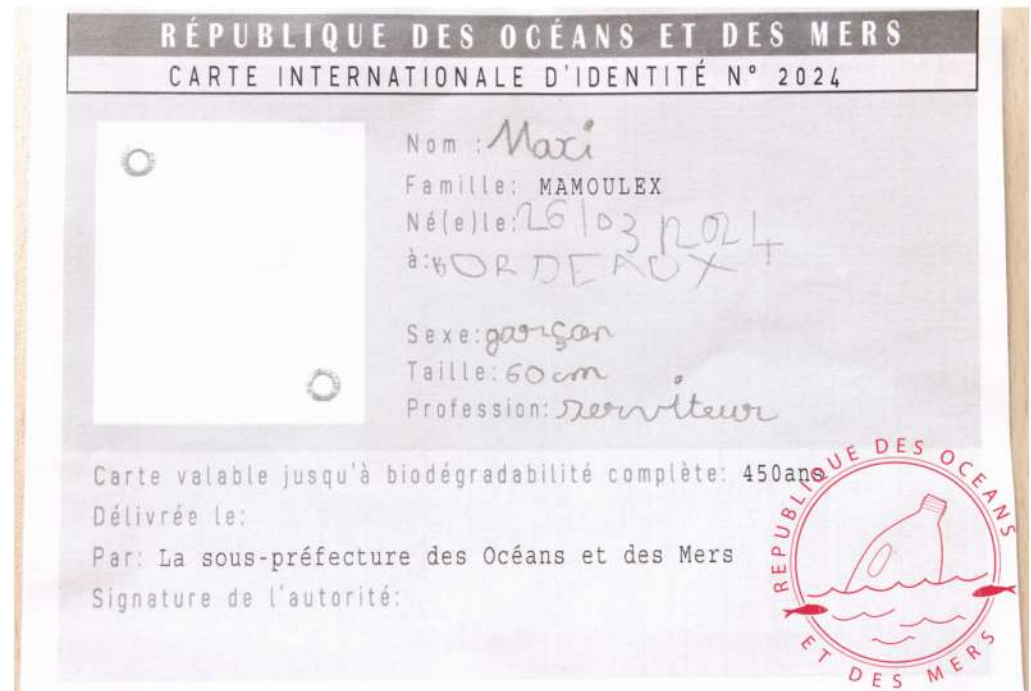 RÉPUBLIQUE DES OCÉANS ET DES MERS
CARTE INTERNATIONALE D'IDENTITÉ N° 2024
Nom : Maxi
Famille: MAMOULEX
Né(e)le: 26/03/2024
à: BORDEAUX
Sexe: garçon
Taille: 60 cm
Profession: serviteur
Carte valable jusqu'à biodégradabilité complète: 450ans
Délivrée le:
Par: La sous-préfecture des Océans et des Mers
Signature de l'autorité:
REPUBLIQUE DES OCEANS
ET DES MERS